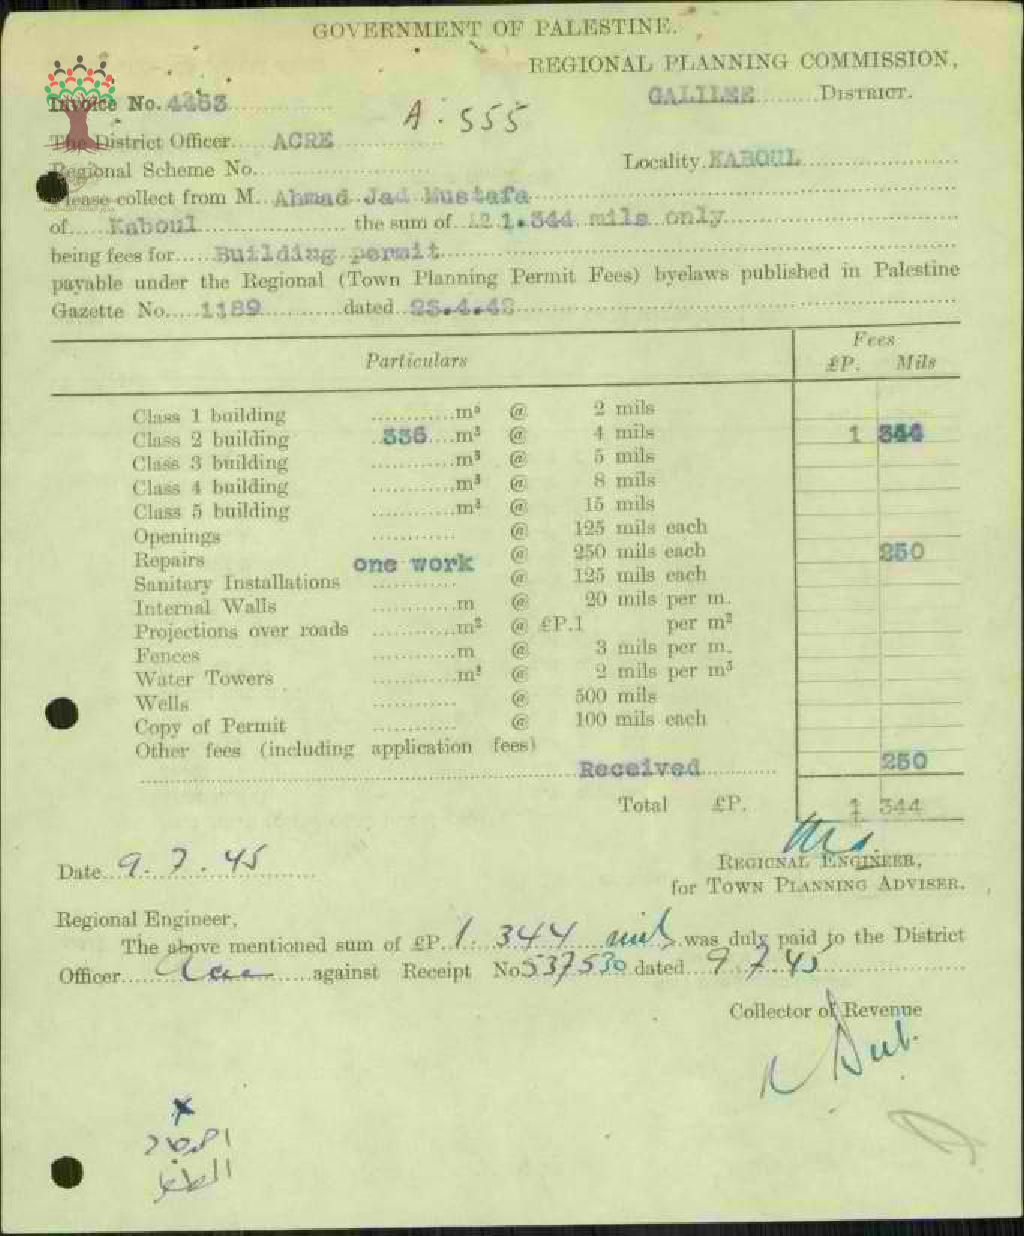 GOVERNMENT OF PALESTINE.
REGIONAL PLANNING COMMISSION,
GALILEE DISTRICT.
Invoice No. 4453
A. 555
The District Officer ACRE
Regional Scheme No.
Locality. KABOUL
Please collect from M. Ahmad Jad Mustafa
of Kaboul the sum of 1.344 mils only
being fees for Building permit
payable under the Regional (Town Planning Permit Fees) byelaws published in Palestine
Gazette No. 1189 dated 23.4.42
Particulars Fees
£P. Mils
Class 1 building m³ @ 2 mils
Class 2 building 336 m³ @ 4 mils 1 344
Class 3 building m³ @ 5 mils
Class 4 building m³ @ 8 mils
Class 5 building m³ @ 15 mils
Openings @ 125 mils each
Repairs one work @ 250 mils each 250
Sanitary Installations @ 125 mils each
Internal Walls m @ 20 mils per m.
Projections over roads m² @ £P.1 per m²
Fences m @ 3 mils per m.
Water Towers m³ @ 2 mils per m³
Wells @ 500 mils
Copy of Permit @ 100 mils each
Other fees (including application fees)
Received 250
Total £P. 1 344
REGIONAL ENGINEER,
for TOWN PLANNING ADVISER.
Date 9.7.45
Regional Engineer,
The above mentioned sum of £P. 1.344 mils was duly paid to the District
Officer Acre against Receipt No 537530 dated 9.7.45
Collector of Revenue